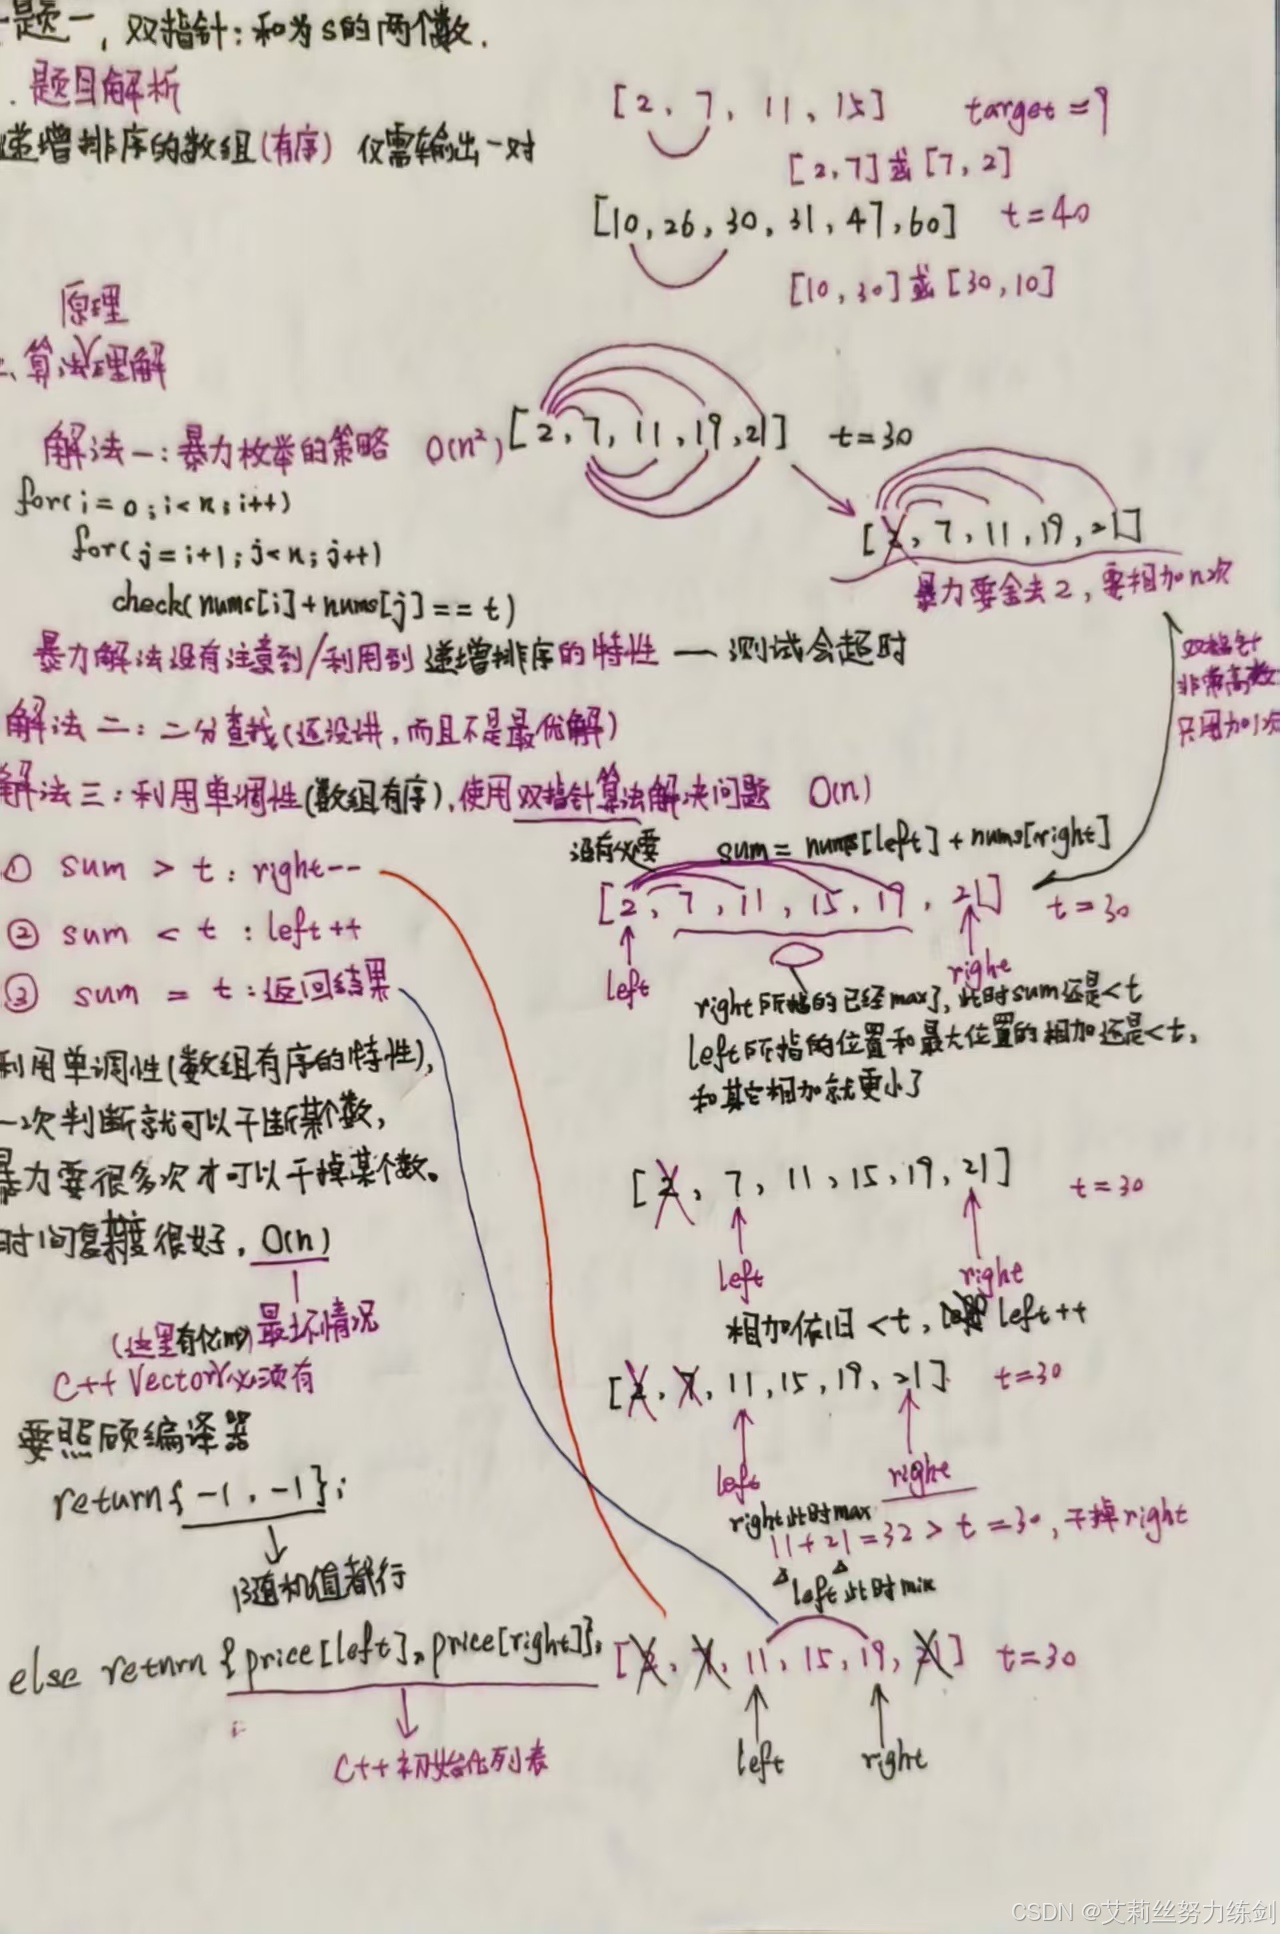 题一，双指针：和为s的两个数.
题目解析
[2, 7, 11, 15] target=9
递增排序的数组(有序) 仅需输出一对
[2,7]或[7,2]
[10,26,30,31,47,60] t=40
[10,30]或[30,10]
原理
二、算法理解
解法一：暴力枚举的策略 O(n²)
[2,7,11,19,21] t=30
for(i=0;i<n;i++)
for(j=i+1;j<n;j++)
check(nums[i]+nums[j]==t)
[2,7,11,19,21]
暴力要舍去2，要相加n次
暴力解法没有注意到/利用到递增排序的特性 — 测试会超时
双指针
非常高效
只用加1次
解法二：二分查找(还没讲，而且不是最优解)
解法三：利用单调性(数组有序),使用双指针算法解决问题 O(n)
没有必要 sum=nums[left]+nums[right]
① sum > t : right--
[2,7,11,15,19,21] t=30
② sum < t : left++
left right
③ sum = t : 返回结果
right所指的已经max了，此时sum还是<t
left所指的位置和最大位置的相加还是<t,
和其它相加就更小了
利用单调性(数组有序的特性),
一次判断就可以干断某个数,
暴力要很多次才可以干掉某个数。
时间复杂度很好. O(n)
[2,7,11,15,19,21] t=30
left right
相加依旧<t, left++
(这里有优la) 最坏情况
C++ Vector必须有
[2,7,11,15,19,21] t=30
left right
要照顾编译器
return{-1,-1};
right此时max
11+21=32>t=30,干掉right
left此时min
随机值都行
else return {price[left],price[right]};
[2,7,11,15,19,21] t=30
left right
C++初始化列表
CSDN @艾莉丝努力练剑